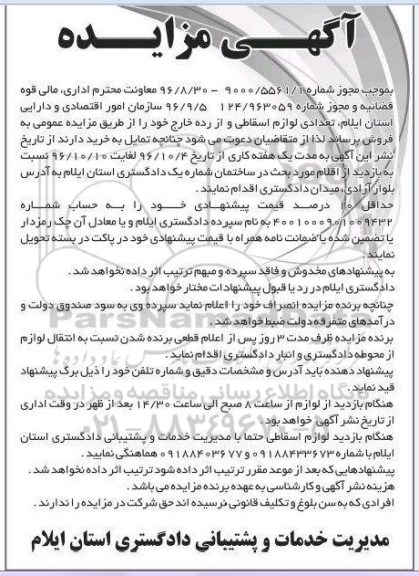 آگهـــی مزایـــده
بموجب مجوز شماره ۹۰۰۰/۵۵۶۱/۱ - ۹۶/۸/۳۰ معاونت محترم اداری، مالی قوه
قضائیه و مجوز شماره ۱۲۴/۹۶۳۰۵۹ ۹۶/۹/۵ سازمان امور اقتصادی و دارایی
استان ایلام، تعدادی لوازم اسقاطی و از رده خارج خود را از طریق مزایده عمومی به
فروش برساند لذا از متقاضیان دعوت می شود چنانچه تمایل به خرید دارند از تاریخ
نشر این آگهی به مدت یک هفته کاری از تاریخ ۹۶/۱۰/۴ لغایت ۹۶/۱۰/۱۰ نسبت
به بازدید از اقلام مورد بحث در ساختمان شماره یک دادگستری استان ایلام به آدرس
بلوار آزادی، میدان دادگستری اقدام نمایند.
حداقل ۱۰ درصد قیمت پیشنهادی خود را به حساب شماره
۴۰۰۱۰۰۰۹۰۱۰۰۹۴۳۲ به نام سپرده دادگستری ایلام و یا معادل آن چک رمزدار
یا تضمین شده یا ضمانت نامه همراه با قیمت پیشنهادی خود در پاکت در بسته تحویل
نمایند.
به پیشنهادهای مخدوش و فاقد سپرده و مبهم ترتیب اثر داده نخواهد شد.
دادگستری ایلام در رد یا قبول پیشنهادات مختار خواهد بود.
چنانچه برنده مزایده انصراف خود را اعلام نماید سپرده وی به سود صندوق دولت و
درآمدهای متفرقه دولت ضبط خواهد شد.
برنده مزایده ظرف مدت ۳ روز پس از اعلام قطعی برنده شدن نسبت به انتقال لوازم
از محوطه دادگستری و انبار دادگستری اقدام نماید.
پیشنهاد دهنده باید آدرس و مشخصات دقیق و شماره تلفن خود را ذیل برگ پیشنهاد
قید نماید.
هنگام بازدید از لوازم از ساعت ۸ صبح الی ساعت ۱۴/۳۰ بعد از ظهر در وقت اداری
از تاریخ نشر آگهی خواهد بود.
هنگام بازدید لوازم اسقاطی حتما با مدیریت خدمات و پشتیبانی دادگستری استان
ایلام با شماره ۰۹۱۸۸۴۳۳۶۷۳ و ۰۹۱۸۸۴۰۳۶۷۷ هماهنگی نمایید.
پیشنهادهایی که بعد از موعد مقرر ترتیب اثر داده شود ترتیب اثر داده نخواهد شد.
هزینه نشر آگهی و کارشناسی به عهده برنده مزایده می باشد.
افرادی که به سن بلوغ و تکلیف قانونی نرسیده اند حق شرکت در مزایده را ندارند.
مدیریت خدمات و پشتیبانی دادگستری استان ایلام